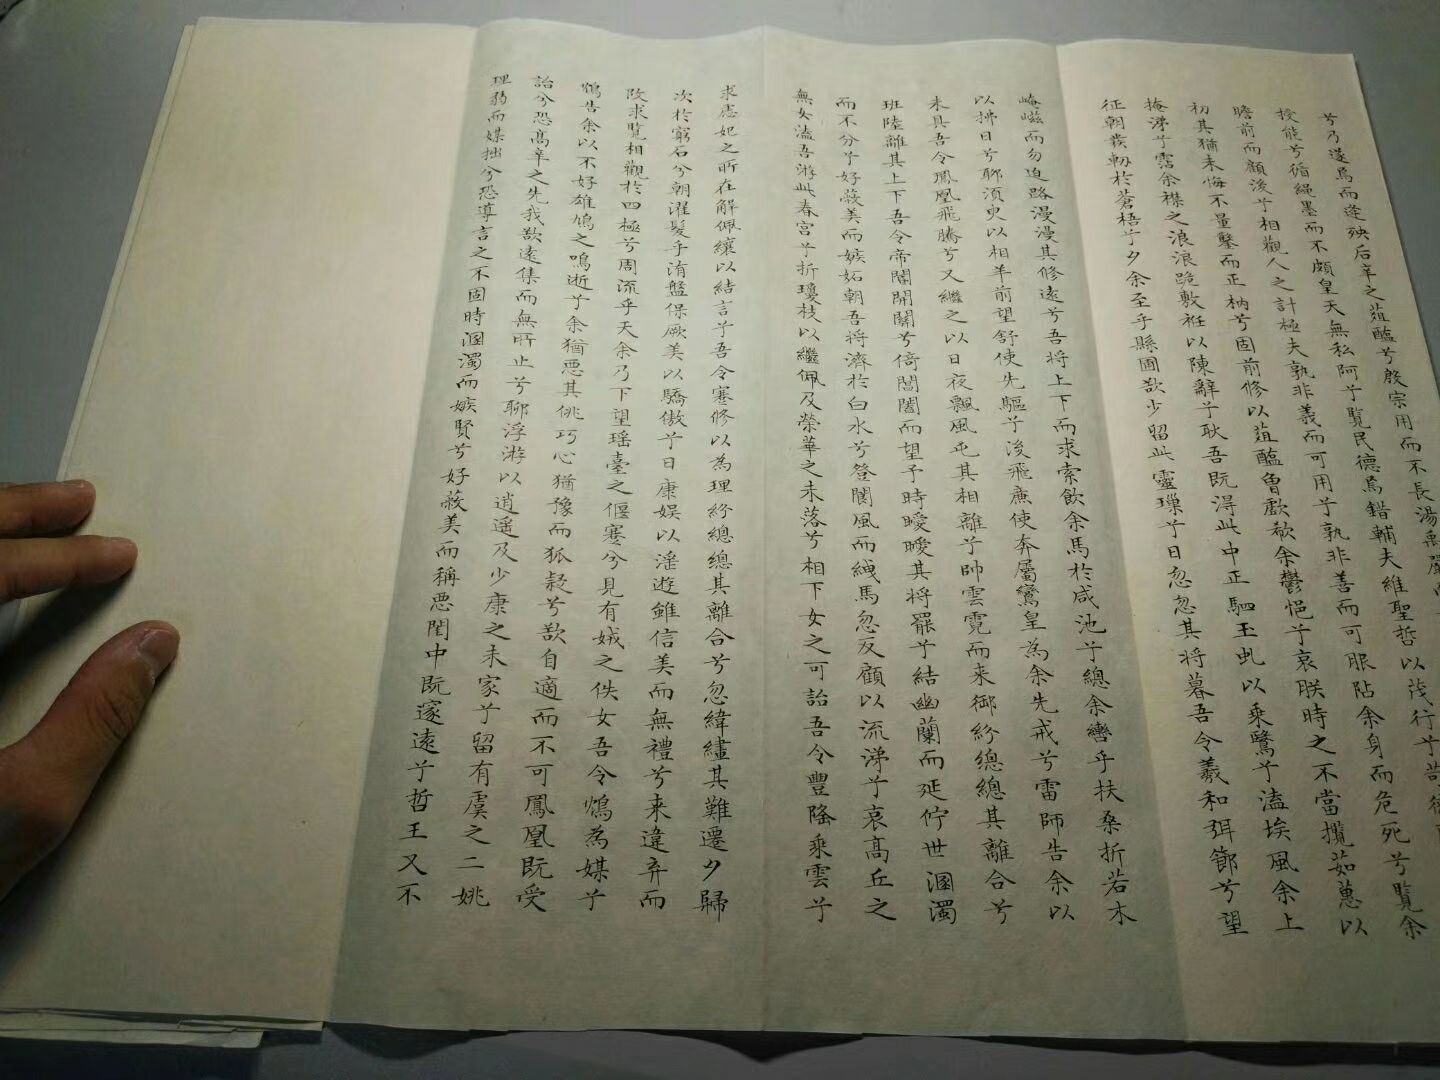 兮乃遂焉而逢殃后辛之菹醢兮殷宗用而不長湯禹嚴而
授能兮循繩墨而不頗皇天無私阿兮覽民德焉錯輔夫維聖哲以茂行兮苟得
瞻前而顧後兮相觀人之計極夫孰非義而可用兮孰非善而可服阽余身而危死兮覽余
初其猶未悔不量鑿而正枘兮固前修以菹醢曾歔欷余鬱悒兮哀朕時之不當攬茹蕙以
掩涕兮霑余襟之浪浪跪敷衽以陳辭兮耿吾既得此中正駟玉虬以乘鷖兮溘埃風余上
征朝發軔於蒼梧兮夕余至乎縣圃欲少留此靈璅兮日忽忽其將暮吾令羲和弭節兮望
崦嵫而勿迫路漫漫其修遠兮吾將上下而求索飲余馬於咸池兮總余轡乎扶桑折若木
以拂日兮聊須臾以相羊前望舒使先驅兮後飛廉使奔屬鸞皇為余先戒兮雷師告余以
未具吾令鳳凰飛騰兮又繼之以日夜飄風屯其相離兮帥雲霓而来御紛總總其離合兮
班陸離其上下吾令帝閽開關兮倚閶闔而望予時曖曖其將罷兮結幽蘭而延佇世溷濁
而不分兮好蔽美而嫉妬朝吾將濟於白水兮登閬風而緤馬忽反顧以流涕兮哀高丘之
無女溘吾游此春宫兮折瓊枝以繼佩及榮華之未落兮相下女之可詒吾令豐隆乘雲兮
求虙妃之所在解佩纕以結言兮吾令蹇修以為理紛總總其離合兮忽緯繣其難遷夕歸
次於窮石兮朝濯髮乎洧盤保厥美以驕傲兮日康娱以淫遊雖信美而無禮兮来違弃而
改求覽相觀於四極兮周流乎天余乃下望瑶臺之偃蹇兮見有娀之佚女吾令鴆為媒兮
鴆告余以不好雄鳩之鳴逝兮余猶惡其佻巧心猶豫而狐疑兮欲自適而不可鳳凰既受
詒兮恐高辛之先我欲遠集而無所止兮聊浮游以逍遥及少康之未家兮留有虞之二姚
理弱而媒拙兮恐導言之不固時溷濁而嫉賢兮好蔽美而稱惡閨中既邃遠兮哲王又不